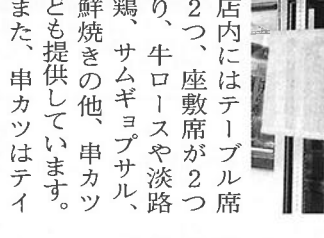 店内にはテーブル席
2つ、座敷席が2つ
り、牛ロースや淡路
鶏、サムギョプサル、
鮮焼きの他、串カツ
ども提供しています。
また、串カツはテイ